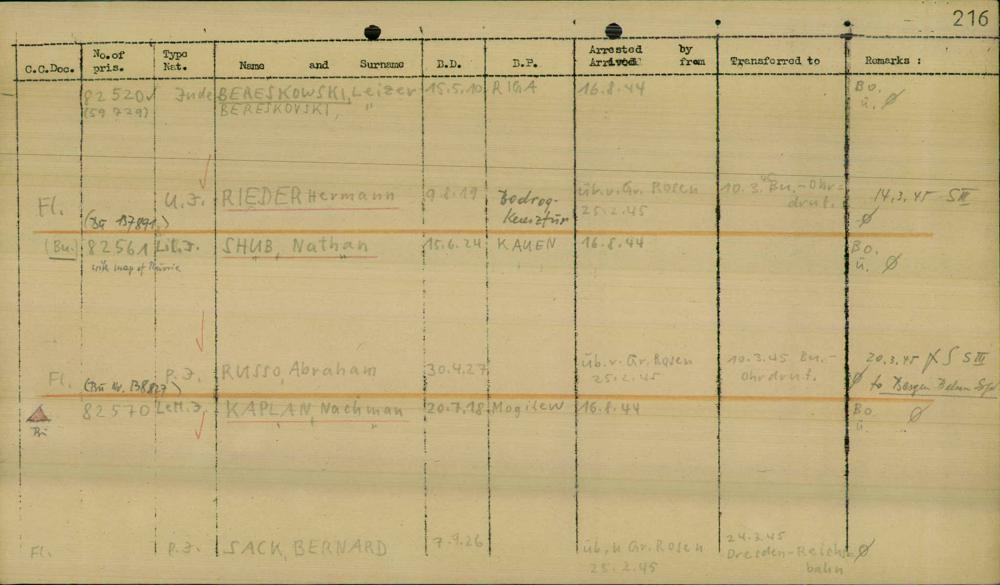 216
C.C.Doc. No.of pris. Type Nat. Name and Surname B.D. B.P. Arrested by Arrived from Transferred to Remarks :
82520 Jude BERESKOWSKI, Leizer 15.5.10 RIGA 16.8.44 Bo.
(59 729) BERESKOVSKI, " ü. Ø
Fl. U.J. RIEDER Hermann 9.8.19 Bodrog- üb.v.Gr. Rosen 10.3. Bu.-Ohr= 14.3.45 SIII
Keresztur 25.2.45 druf. Ø
(Bu 137891.)
(Bu.) 82561 Lit.J. SHUB, Nathan 15.6.24 KAUEN 16.8.44 Bo.
ü. Ø
Fl. P.J. RUSSO, Abraham 30.4.27 üb.v.Gr.Rosen 10.3.45 Bu.- 20.3.45 S SIII
25.2.45 Ohrdruf. Ø to Bergen Belsen
(Bu Nr. 138827)
82570 Lett.J. KAPLAN Nachman 20.7.18 Mogilew 16.8.44 Bo. Ø
Bu ü.
Fl. P.J. SACK, BERNARD 7.9.26 üb.v Gr.Rosen 24.3.45
25.2.45 Dresden-Reichs= Ø
bahn